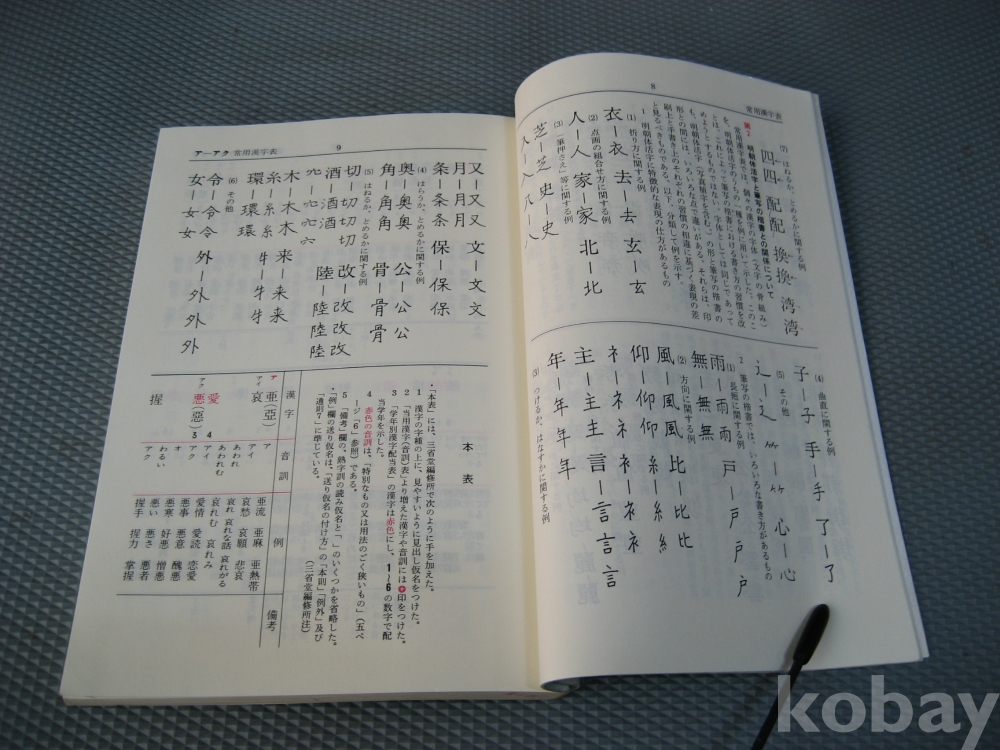 8
常用漢字表
(7) はねるか、とめるかに関する例
四四 配配 換換 湾湾
第2 明朝体活字と筆写の楷書との関係について
常用漢字表では、個々の漢字の字体(文字の骨組み)
を、明朝体活字のうちの一種を例に用いて示した。このこ
とは、これによって筆写の楷書における書き方の習慣を改
めようとするものではない。字体としては同じであって
も、明朝体活字(写真植字を含む。)の形と筆写の楷書の
形との間には、いろいろな点で違いがある。それらは、印
刷上と手書き上のそれぞれの習慣の相違に基づく表現の差
と見るべきものである。以下、分類して例を示す。
1 明朝体活字に特徴的な表現の仕方があるもの
(1) 折り方に関する例
衣―衣 去―去 玄―玄
(2) 点画の組合せ方に関する例
人―人 家―家 北―北
(3) 「筆押さえ」等に関する例
芝―芝 史―史
入―入 八―八
(4) 曲直に関する例
子―子 手―手 了―了
(5) その他
辶―辶 ⺮―⺮ 心―心
2 筆写の楷書では、いろいろな書き方があるもの
(1) 長短に関する例
雨―雨 戸―戸 戸
無―無 無
(2) 方向に関する例
風―風 風 比―比 比
仰―仰 仰 糸―糸 糸
ネ―ネ ネ 衤―衤 衤
主―主 主 言―言 言 言
年―年 年 年
(3) つけるか、はなすかに関する例
アーアク 常用漢字表
9
又―又 又 文―文 文
月―月 月
条―条 条 保―保 保
(4) はらうか、とめるかに関する例
奥―奥 奥 公―公 公
角―角 角 骨―骨 骨
(5) はねるか、とめるかに関する例
切―切 切 切 改―改 改 改
酒―酒 酒 陸―陸 陸 陸
木―木 木 来―来 来
糸―糸 糸 牜―牜 牜
環―環 環
(6) その他
令―令 令 外―外 外 外
女―女 女
本表
・「本表」には、三省堂編修所で次のように手を加えた。
1 漢字の字種の上に、見やすいように見出し仮名をつけた。
2 「当用漢字(音訓)表」より増えた漢字や音訓には+印をつけた。
3 「学年別漢字配当表」の漢字は赤色にし、1~6の数字で配
当学年を示した。
4 赤色の音訓は、「特別なもの又は用法のごく狭いもの」(五ペ
ージ「6」参照)である。
5 「備考」欄の、熟字訓の読み仮名と「 」のいくつかを省略した。
「例」欄の送り仮名は、「送り仮名の付け方」の「本則」「例外」及び
「通則7」に準じている。
(三省堂編修所注)
漢字 音訓 例 備考
ア 亜(亞) ア 亜流 亜麻 亜熱帯
アイ 哀 アイ 哀愁 哀願 悲哀
あわれ 哀れ 哀れな話 哀れがる
あわれむ 哀れむ 哀れみ
愛 4 アイ 愛情 愛読 恋愛
アク 悪(惡) 3 アク 悪事 悪意 醜悪
オ 悪寒 好悪 憎悪
わるい 悪い 悪さ 悪者
握 アク 握手 握力 掌握
kobay